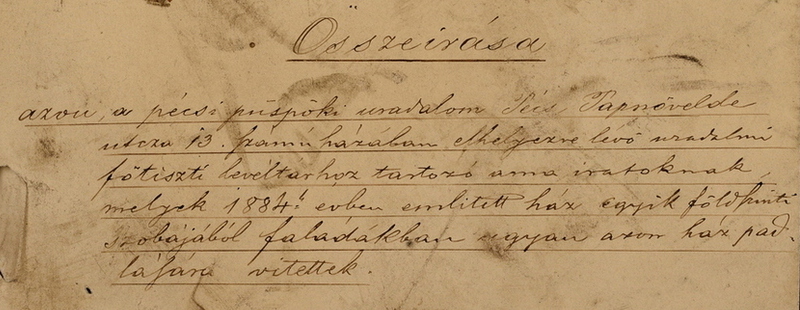 Összeirása
azon, a pécsi püspöki uradalom Pécs Papnövelde
utcza 13. számú házában elhelyezve levő uradalmi
főtiszti levéltárhoz tartozó ama iratoknak,
melyek 1884i évben emlitett ház egyik földszinti
szobájából faládákban ugyan azon ház pad-
lására vitettek.